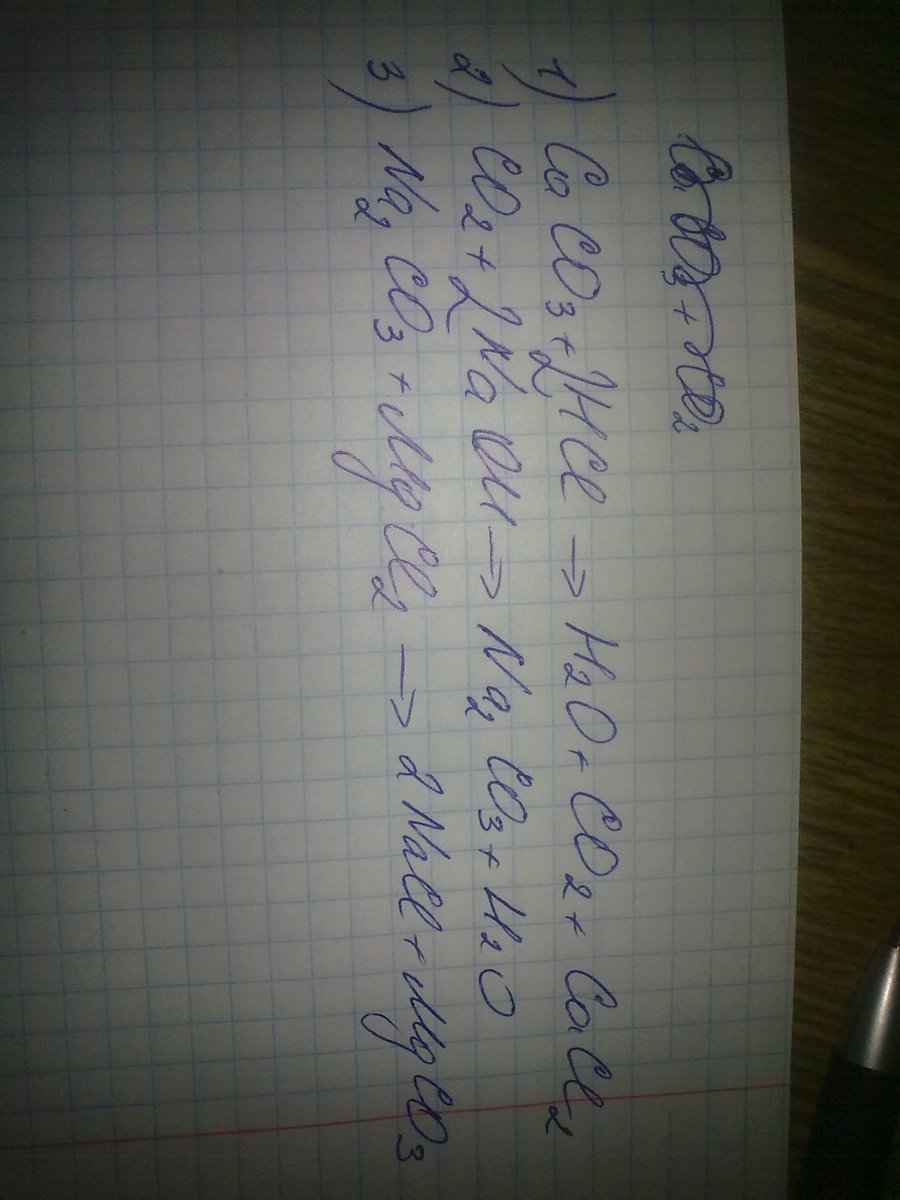 1) CaCO₃ + 2HCl → H₂O + CO₂ + CaCl₂
2) CO₂ + 2NaOH → Na₂CO₃ + H₂O
3) Na₂CO₃ + MgCl₂ → 2NaCl + MgCO₃